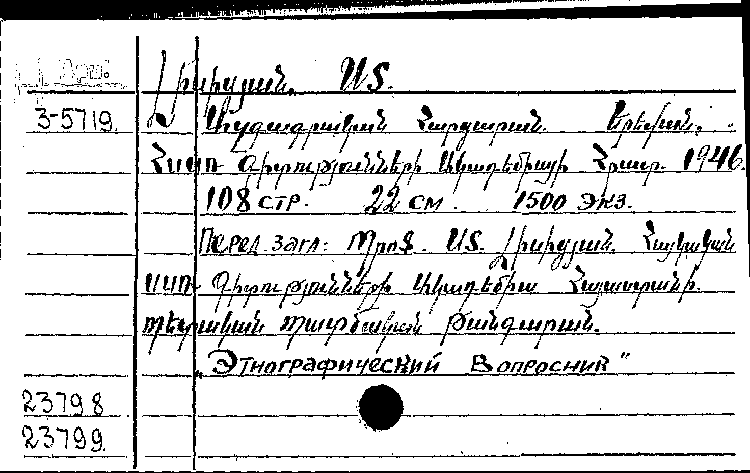 Арм.
Լիսիցյան. ՍՏ.
3-5719. Ազգագրական Հարցարան. Երեվան,
ՀՍՍՌ Գիտությունների Ակադեմիայի Հրատ. 1946.
108 СТР. 22 СМ. 1500 ЭКЗ.
Перед загл: Պրոֆ. ՍՏ. Լիսիցյան. Հայկական
ՍՍՌ Գիտությունների Ակադեմիա Հայաստանի
պետական պատմական թանգարան.
„Этнографический Вопросник"
23798
23799.